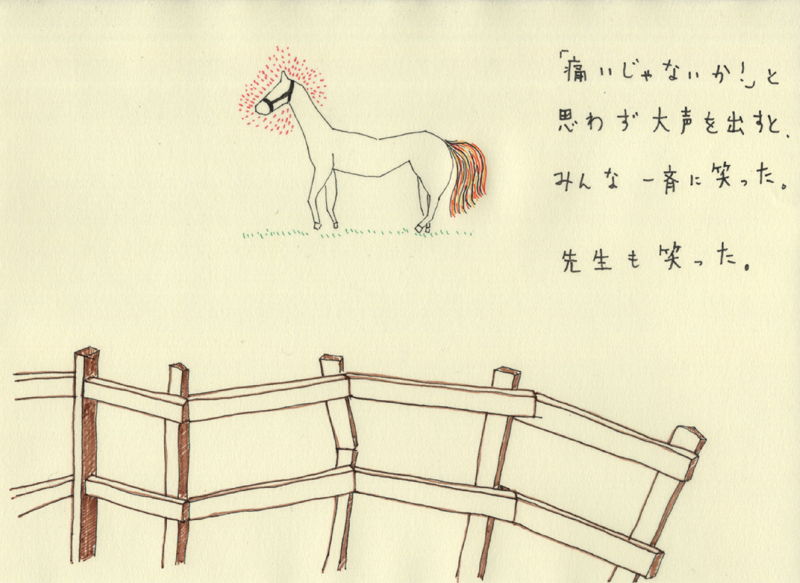 「痛いじゃないか！」と
思わず大声を出すと、
みんな一斉に笑った。
先生も笑った。